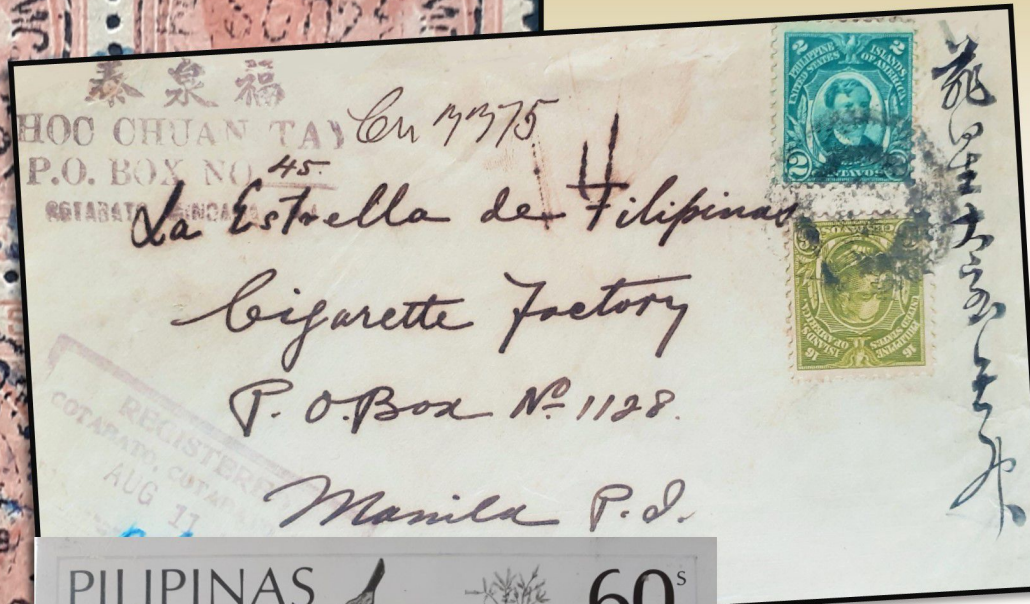 福泉泰
HOC CHUAN TAY
P.O. BOX NO. 45
COTABATO, MINDANAO
La Estrella de Filipinas
Cigarette Factory
P. O. Box Nº 1128.
Manila P. I.
REGISTERED
COTABATO, COTABATO
AUG 11
2 2
PHILIPPINE ISLANDS
UNITED STATES OF AMERICA
2 CENTAVOS
16 16
PHILIPPINE ISLANDS
UNITED STATES OF AMERICA
CENTAVOS
PILIPINAS
60s